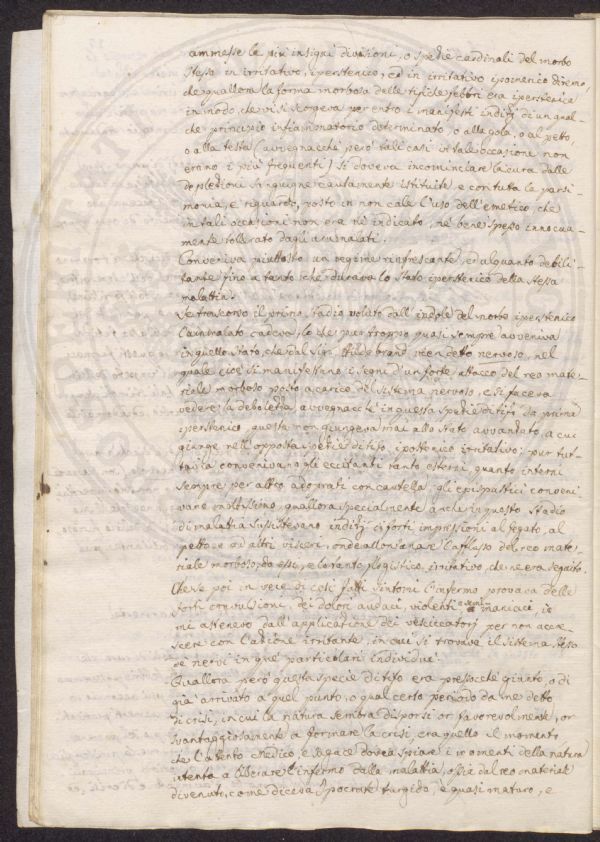 ammesse le più insigni divisioni, o spezie cardinali del morbo
stesso in irritativo, iperstenico, ed in irritativo ipostenico diremo,
che quallora la forma morbosa delle tifiche febbri era iperstenica
in modo, che vi si scorgeva per entro i manifesti indizj di un qual-
che principio infiammatorio determinato, o alla gola, o al petto,
o alla testa (avvegnacche però tali casi in tale occasione non
erano i più frequenti) si doveva incominciare la cura dalle
deplezioni sanguigne cautamente istituite, e con tuta la parsi-
monia, e riguardo, posto in non cale l'uso dell'emetico, che
in tali occasioni non era nè indicato, nè bene spesso innocua-
mente tollerato dagli ammalati.
Conveniva piuttosto un regime rinfrescante, ed alquanto debili-
tante fino a tanto che durava lo stato iperstenico della stessa
malatia.
Se trascorso il primo stadio voluto dall'indole del morbo iperstenico
l'ammalato cadeva, lo che pur troppo quasi sempre avveniva
in quello stato, che dal Sigr. Hildebrand vien detto nervoso, nel
quale cioè si manifestano i segni d'un forte attacco del reo mate-
riale morboso posto a carico del sistema nervoso, e si faceva
vedere la debolezza, avvegnacchè in questa spezie di tifo da prima
iperstenico, questa non giungeva mai allo stato avvanzato, a cui
giunge nell'opposta spezie di tifo, ipostenico irritativo; pur tut-
tavia convenivano gli eccitanti tanto esterni, quanto interni
sempre per altro adoprati con cautella; gli epispastici conveni-
vano moltissimo, quallora specialmente anche in questo stadio
di malatia sussistevano indizj di forti impressioni al fegato, al
petto, e ad altri visceri, onde allontanare l'afflusso del reo mate-
riale morboso da essi, e lo stato flogistico, irritativo, che ne era seguito.
Che se poi in vece di così fatti sintomi l'infermo provava delle
forti convulsioni, dei dolori audaci, violenti e semi-maniaci, io
mi astenevo dall'applicazione dei vesciccatorj per non accre-
scere con l'azione irritante, in cui si trovava il sistema stesso
de' nervi in que' particolari individui.
Quallora però questa specie di tifo era pressocchè giunto, o di
già arrivato a quel punto, o qual certo periodo da me detto
di crisi, in cui la natura sembra disporsi or favorevolmente, or
svantaggiosamente a formare la crisi, era quello il momento
che l'attento Medico, e sagace dovea spiare i momenti della natura
intenta a liberare l'infermo dalla malattia, ossia dal reo materiale
divenuto, come diceva Ipocrate turgido, e quasi maturo, e